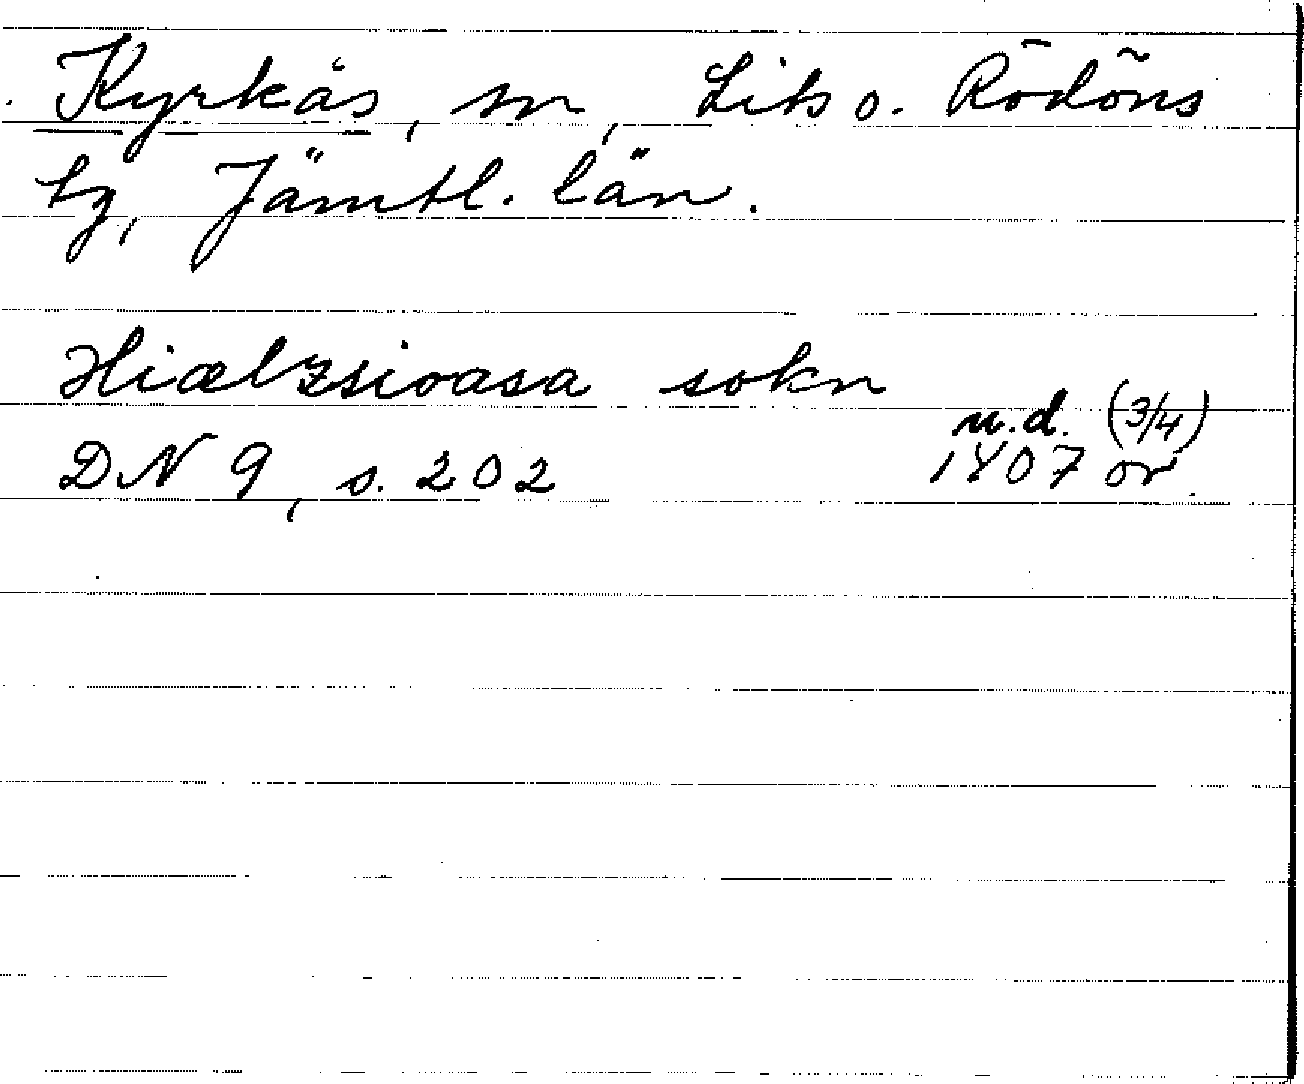 Kyrkås, sn, Lits o. Rödöns
tg, Jämtl. län.
Hiælzsioasa sokn
u.d. (3/4)
DN 9, s. 202 1407 or